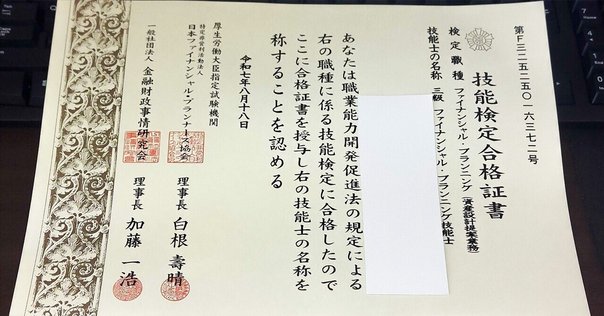 第F三二五二五〇一六三七二号
技能検定合格証書
検定職種 ファイナンシャル・プランニング(資産設計提案業務)
技能士の名称 三級 ファイナンシャル・プランニング技能士
あなたは職業能力開発促進法の規定による
右の職種に係る技能検定に合格したので
ここに合格証書を授与し右の技能士の名称を
称することを認める
令和七年八月十八日
厚生労働大臣指定試験機関
特定非営利活動法人
日本ファイナンシャル・プランナーズ協会
理事長 白根壽晴
一般社団法人 金融財政事情研究会
理事長 加藤一浩